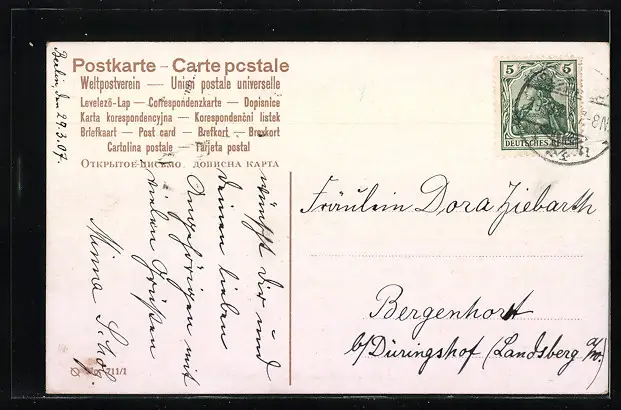 Postkarte – Carte postale
Weltpostverein — Union postale universelle
Levelező-Lap — Correspondenzkarte — Dopisnice
Karta korespondencyjna — Korespondenční listek
Briefkaart — Post card — Brefkort — Brevkort
Cartolina postale — Tarjeta postal
Открытое письмо дописна карта
Berlin, den 29.3.07.
wünscht Dir und
Deinen lieben
Angehörigen mit
vielen Grüßen
Minna Scholz.
5 5
DEUTSCHES REICH
Fräulein Dora Ziebarth
Bergenhorst
b/Düringshof (Landsberg a/W.)
711/1